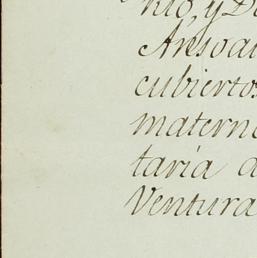 nio, y D
Ansoa
cubiertos
materna
taria d
Ventura